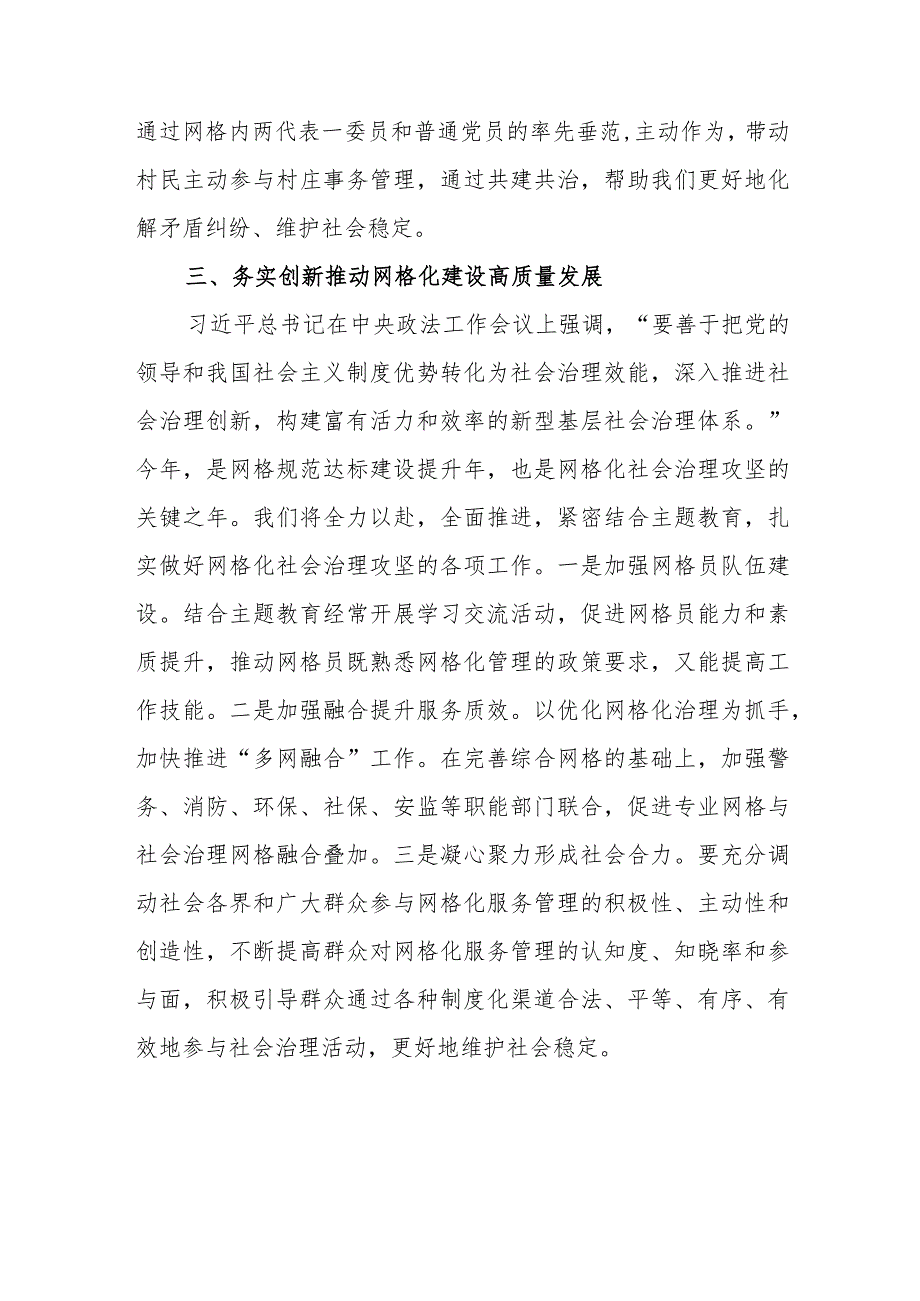 通过网格内两代表一委员和普通党员的率先垂范,主动作为，带动
村民主动参与村庄事务管理，通过共建共治，帮助我们更好地化
解矛盾纠纷、维护社会稳定。
三、务实创新推动网格化建设高质量发展
习近平总书记在中央政法工作会议上强调，“要善于把党的
领导和我国社会主义制度优势转化为社会治理效能，深入推进社
会治理创新，构建富有活力和效率的新型基层社会治理体系。”
今年，是网格规范达标建设提升年，也是网格化社会治理攻坚的
关键之年。我们将全力以赴，全面推进，紧密结合主题教育，扎
实做好网格化社会治理攻坚的各项工作。一是加强网格员队伍建
设。结合主题教育经常开展学习交流活动，促进网格员能力和素
质提升，推动网格员既熟悉网格化管理的政策要求，又能提高工
作技能。二是加强融合提升服务质效。以优化网格化治理为抓手，
加快推进“多网融合”工作。在完善综合网格的基础上，加强警
务、消防、环保、社保、安监等职能部门联合，促进专业网格与
社会治理网格融合叠加。三是凝心聚力形成社会合力。要充分调
动社会各界和广大群众参与网格化服务管理的积极性、主动性和
创造性，不断提高群众对网格化服务管理的认知度、知晓率和参
与面，积极引导群众通过各种制度化渠道合法、平等、有序、有
效地参与社会治理活动，更好地维护社会稳定。